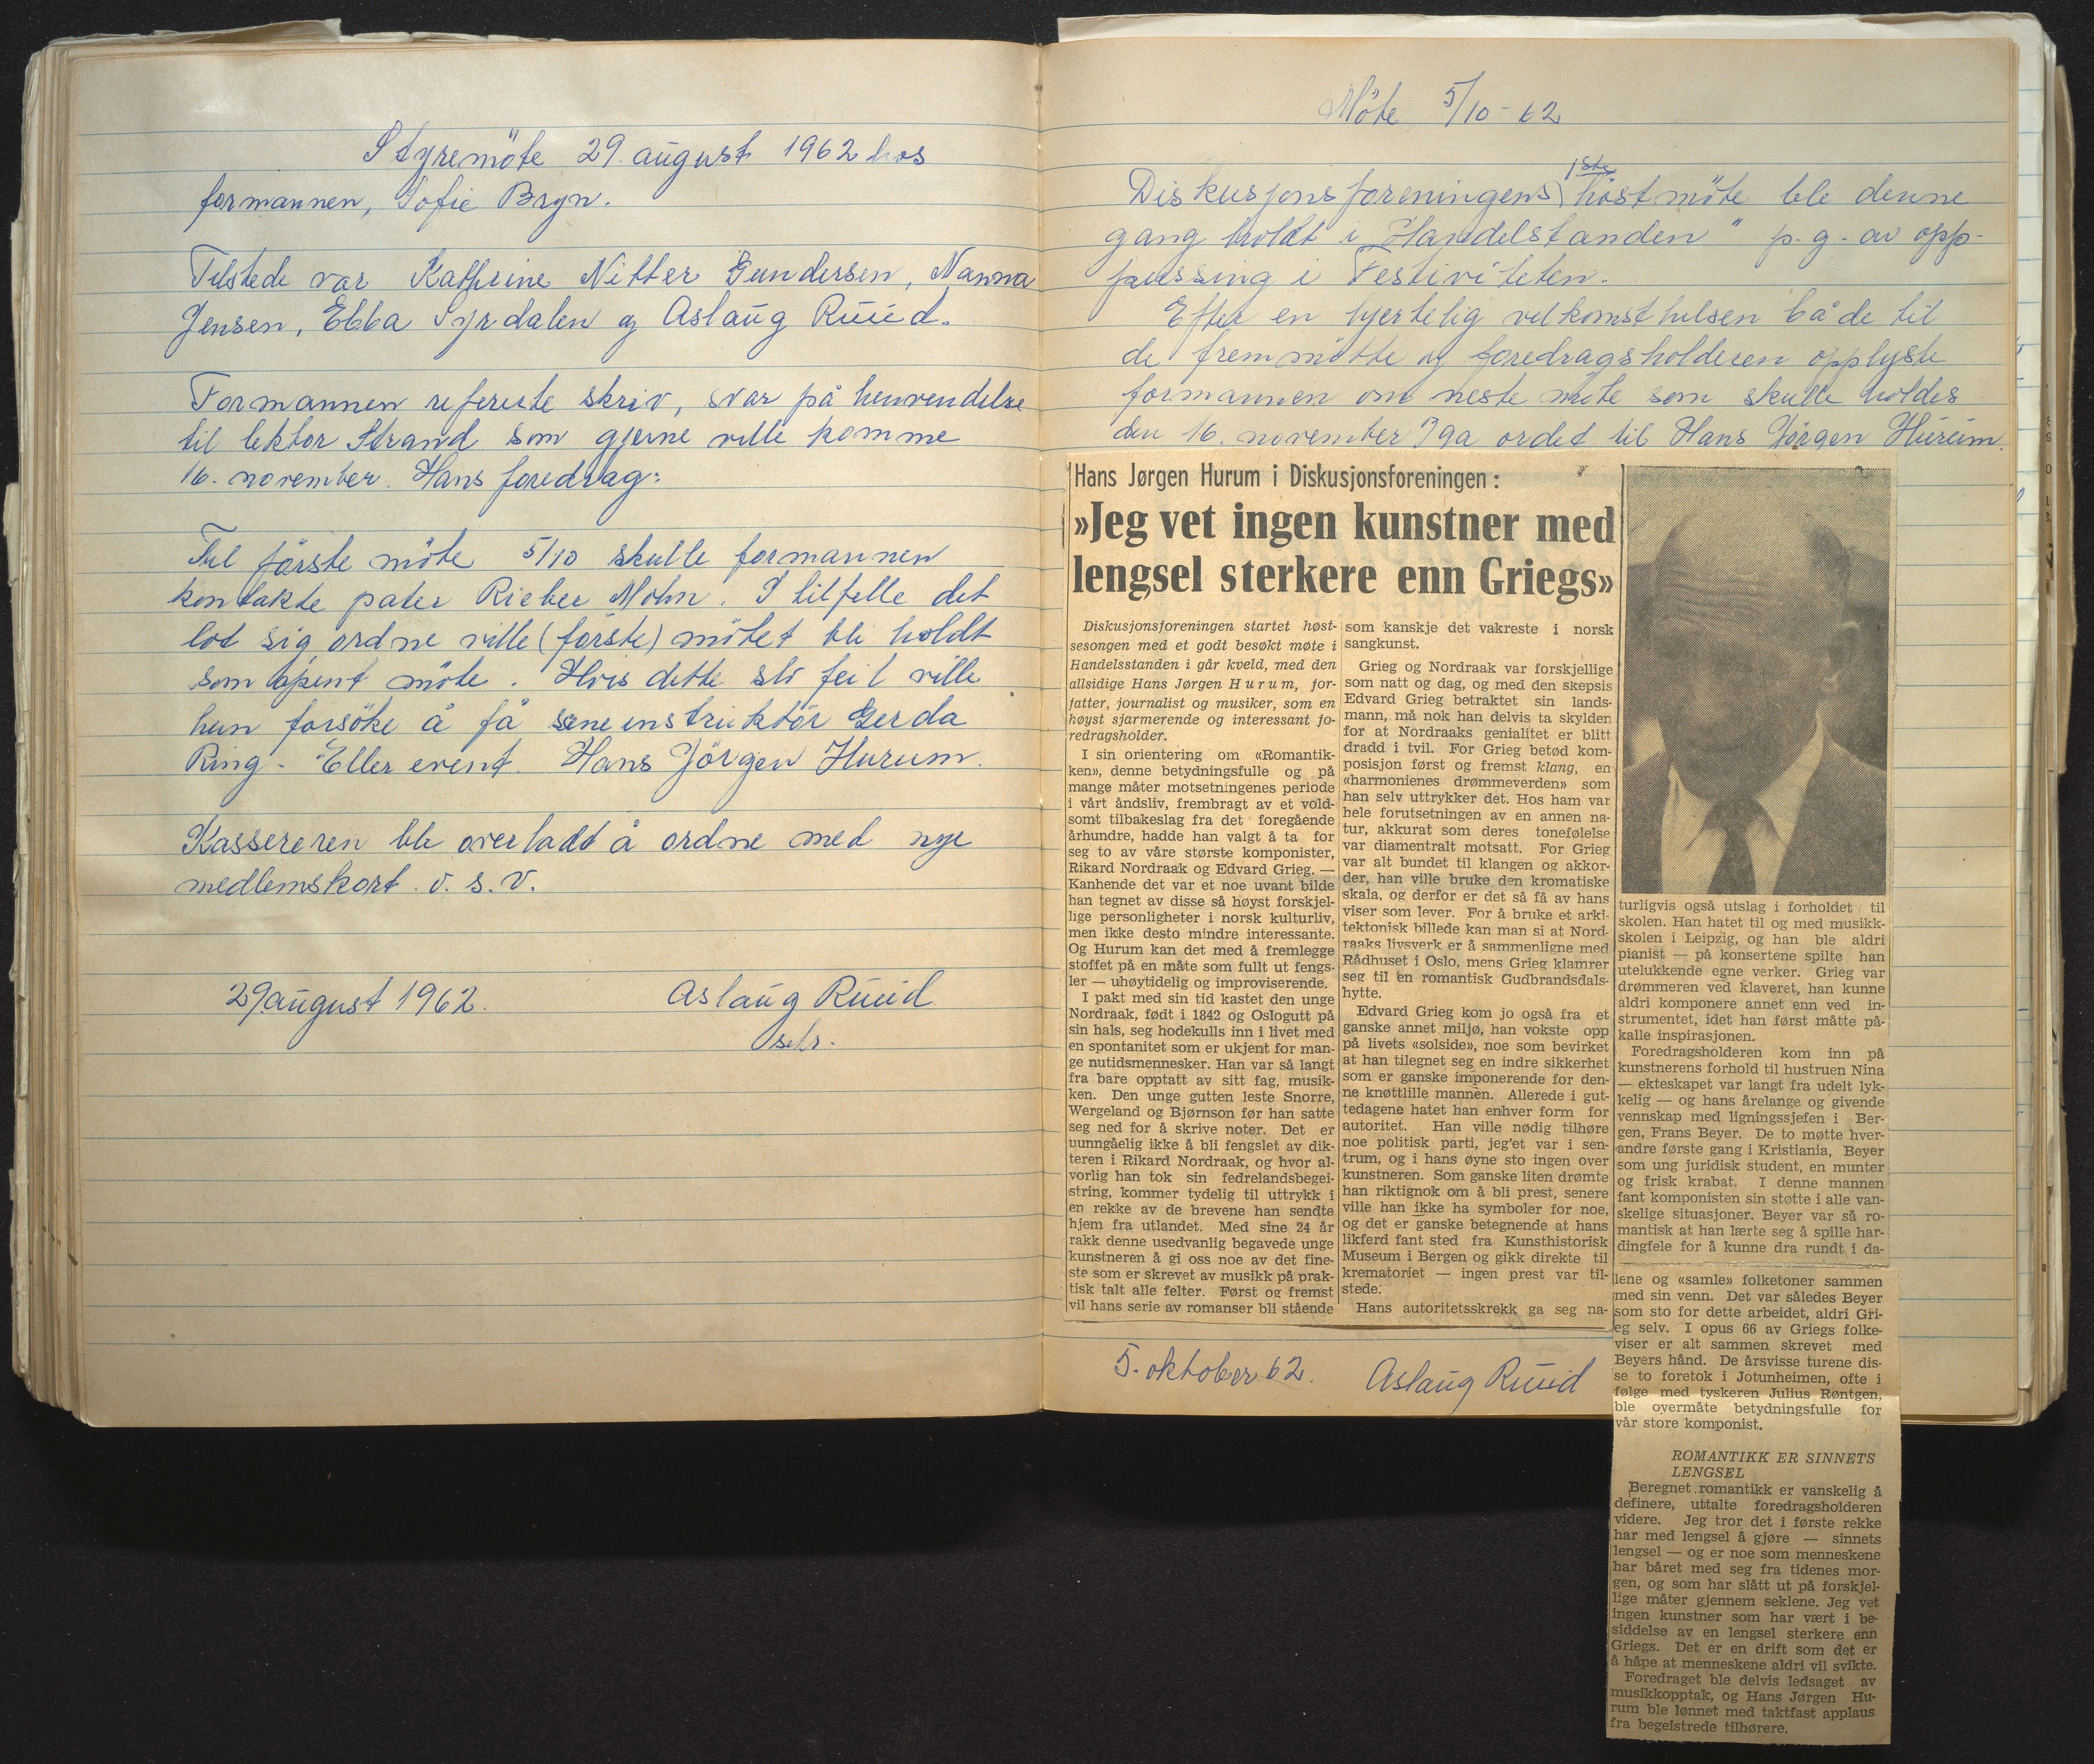 Styremöte 29. august 1962 hos
formannen, Sofie Bryn.
Tilstede var Kathrine Nitter Gundersen, Nanna
Jensen, Ebba Syrdalen og Aslaug Ruud.
Formannen refererte skriv, svar på henvendelse
til lektor Strand som gjerne ville komme
16. november. Hans foredrag:
Til första möte 5/10 skulle formannen
kontakte pater Rieber Mohn. I tilfelle det
lot sig ordne ville (förste) mötet bli holdt
som åpent möte. Hvis dette slo feil ville
hun forsöke å få sceneinstruktör Gerda
Ring. Eller event. Hans Jörgen Hurum.
Kassereren ble overladt å ordne med nye
medlemskort. o. s. v.
29 august 1962. Aslaug Ruud
sekr.
Möte 5/10-62
Diskusjonsforeningens 1ste höstmöte ble denne
gang holdt i "Handelstanden" p.g. av opp-
pussing i Festiviteten.
Efter en hjertelig velkomsthilsen både til
de fremmötte og foredragsholderen opplyste
formannen om neste möte som skulle holdes
den 16. november. Ga ordet til Hans Jörgen Hurum.
Hans Jørgen Hurum i Diskusjonsforeningen:
»Jeg vet ingen kunstner med
lengsel sterkere enn Griegs»
Diskusjonsforeningen startet høst-
sesongen med et godt besøkt møte i
Handelsstanden i går kveld, med den
allsidige Hans Jørgen Hurum, for-
fatter, journalist og musiker, som en
høyst sjarmerende og interessant fo-
redragsholder.
I sin orientering om «Romantik-
ken», denne betydningsfulle og på
mange måter motsetningenes periode
i vårt åndsliv, frembragt av et vold-
somt tilbakeslag fra det foregående
århundre, hadde han valgt å ta for
seg to av våre største komponister,
Rikard Nordraak og Edvard Grieg. —
Kanhende det var et noe uvant bilde
han tegnet av disse så høyst forskjel-
lige personligheter i norsk kulturliv,
men ikke desto mindre interessante.
Og Hurum kan det med å fremlegge
stoffet på en måte som fullt ut fengs-
ler — uhøytidelig og improviserende.
I pakt med sin tid kastet den unge
Nordraak, født i 1842 og Oslogutt på
sin hals, seg hodekulls inn i livet med
en spontanitet som er ukjent for man-
ge nutidsmennesker. Han var så langt
fra bare opptatt av sitt fag, musik-
ken. Den unge gutten leste Snorre,
Wergeland og Bjørnson før han satte
seg ned for å skrive noter. Det er
uunngåelig ikke å bli fengslet av dik-
teren i Rikard Nordraak, og hvor al-
vorlig han tok sin fedrelandsbegei-
string, kommer tydelig til uttrykk i
en rekke av de brevene han sendte
hjem fra utlandet. Med sine 24 år
rakk denne usedvanlig begavede unge
kunstneren å gi oss noe av det fine-
ste som er skrevet av musikk på prak-
tisk talt alle felter. Først og fremst
vil hans serie av romanser bli stående
som kanskje det vakreste i norsk
sangkunst.
Grieg og Nordraak var forskjellige
som natt og dag, og med den skepsis
Edvard Grieg betraktet sin lands-
mann, må nok han delvis ta skylden
for at Nordraaks genialitet er blitt
dradd i tvil. For Grieg betød kom-
posisjon først og fremst klang, en
«harmonienes drømmeverden» som
han selv uttrykker det. Hos ham var
hele forutsetningen av en annen na-
tur, akkurat som deres tonefølelse
var diamentralt motsatt. For Grieg
var alt bundet til klangen og akkor-
der, han ville bruke den kromatiske
skala, og derfor er det så få av hans
viser som lever. For å bruke et arki-
tektonisk billede kan man si at Nord-
raaks livsverk er å sammenligne med
Rådhuset i Oslo, mens Grieg klamrer
seg til en romantisk Gudbrandsdals-
hytte.
Edvard Grieg kom jo også fra et
ganske annet miljø, han vokste opp
på livets «solside», noe som bevirket
at han tilegnet seg en indre sikkerhet
som er ganske imponerende for den-
ne knøttlille mannen. Allerede i gut-
tedagene hatet han enhver form for
autoritet. Han ville nødig tilhøre
noe politisk parti, jeg'et var i sen-
trum, og i hans øyne sto ingen over
kunstneren. Som ganske liten drømte
han riktignok om å bli prest, senere
ville han ikke ha symboler for noe,
og det er ganske betegnende at hans
likferd fant sted fra Kunsthistorisk
Museum i Bergen og gikk direkte til
krematoriet — ingen prest var til-
stede.
Hans autoritetsskrekk ga seg na-
turligvis også utslag i forholdet til
skolen. Han hatet til og med musikk-
skolen i Leipzig, og han ble aldri
pianist — på konsertene spilte han
utelukkende egne verker. Grieg var
drømmeren ved klaveret, han kunne
aldri komponere annet enn ved in-
strumentet, idet han først måtte på-
kalle inspirasjonen.
Foredragsholderen kom inn på
kunstnerens forhold til hustruen Nina
— ekteskapet var langt fra udelt lyk-
kelig — og hans årelange og givende
vennskap med ligningssjefen i Ber-
gen, Frans Beyer. De to møtte hver-
andre første gang i Kristiania, Beyer
som ung juridisk student, en munter
og frisk krabat. I denne mannen
fant komponisten sin støtte i alle van-
skelige situasjoner. Beyer var så ro-
mantisk at han lærte seg å spille har-
dingfele for å kunne dra rundt i da-
lene og «samle» folketoner sammen
med sin venn. Det var således Beyer
som sto for dette arbeidet, aldri Gri-
eg selv. I opus 66 av Griegs folke-
viser er alt sammen skrevet med
Beyers hånd. De årsvisse turene dis-
se to foretok i Jotunheimen, ofte i
følge med tyskeren Julius Røntgen,
ble overmåte betydningsfulle for
vår store komponist.
ROMANTIKK ER SINNETS
LENGSEL
Beregnet romantikk er vanskelig å
definere, uttalte foredragsholderen
videre. Jeg tror det i første rekke
har med lengsel å gjøre — sinnets
lengsel — og er noe som menneskene
har båret med seg fra tidenes mor-
gen, og som har slått ut på forskjel-
lige måter gjennem seklene. Jeg vet
ingen kunstner som har vært i be-
siddelse av en lengsel sterkere enn
Griegs. Det er en drift som det er
å håpe at menneskene aldri vil svikte.
Foredraget ble delvis ledsaget av
musikkopptak, og Hans Jørgen Hu-
rum ble lønnet med taktfast applaus
fra begeistrede tilhørere.
5. oktober 62. Aslaug Ruud